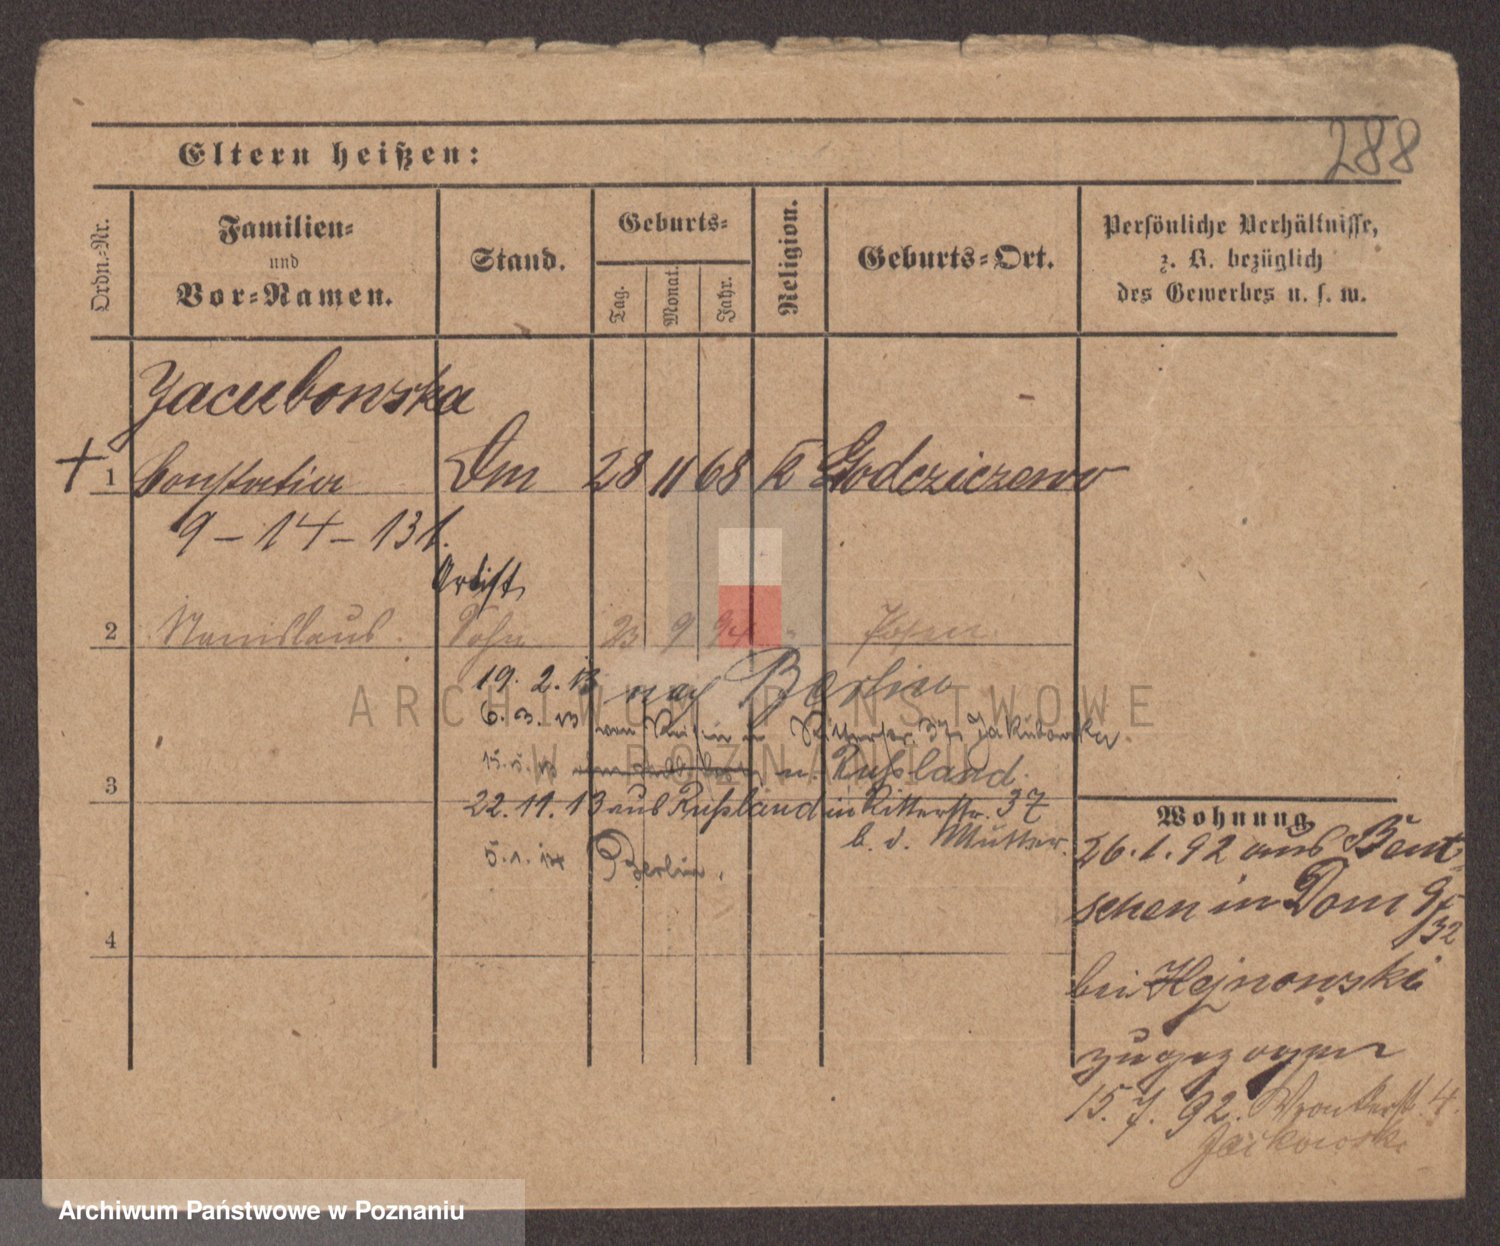 288
Eltern heißen:
Ordn.-Nr.
Familien-
und
Vor-Namen.
Stand.
Geburts-
Tag.
Monat.
Jahr.
Religion.
Geburts-Ort.
Persönliche Verhältnisse,
z. B. bezüglich
des Gewerbes u. s. w.
Jacubowska
+ 1 Constantia Dm 28 11 68 K Godcziczewo
9 - 14 - 131.
Artist
2 Stanislaus. Sohn 23 9 94 " Posen
19. 2. 13 nach Berlin
6. 3. 13 von in Ritterstr. 37 Jakubowska
15. 5. 13 n. Rußland.
3
22. 11. 13 aus Rußland in Ritterstr. 37
b. d. Mutter.
5. 1. 14 Berlin.
4
Wohnung
26. 1. 92 aus Bent-
schen in Dom 9/
32
bei Hejnowski
zugezogen
15. 7. 92. Wronkerstr. 4.
Jackowski
ARCHIWUM PAŃSTWOWE
W POZNANIU
Archiwum Państwowe w Poznaniu